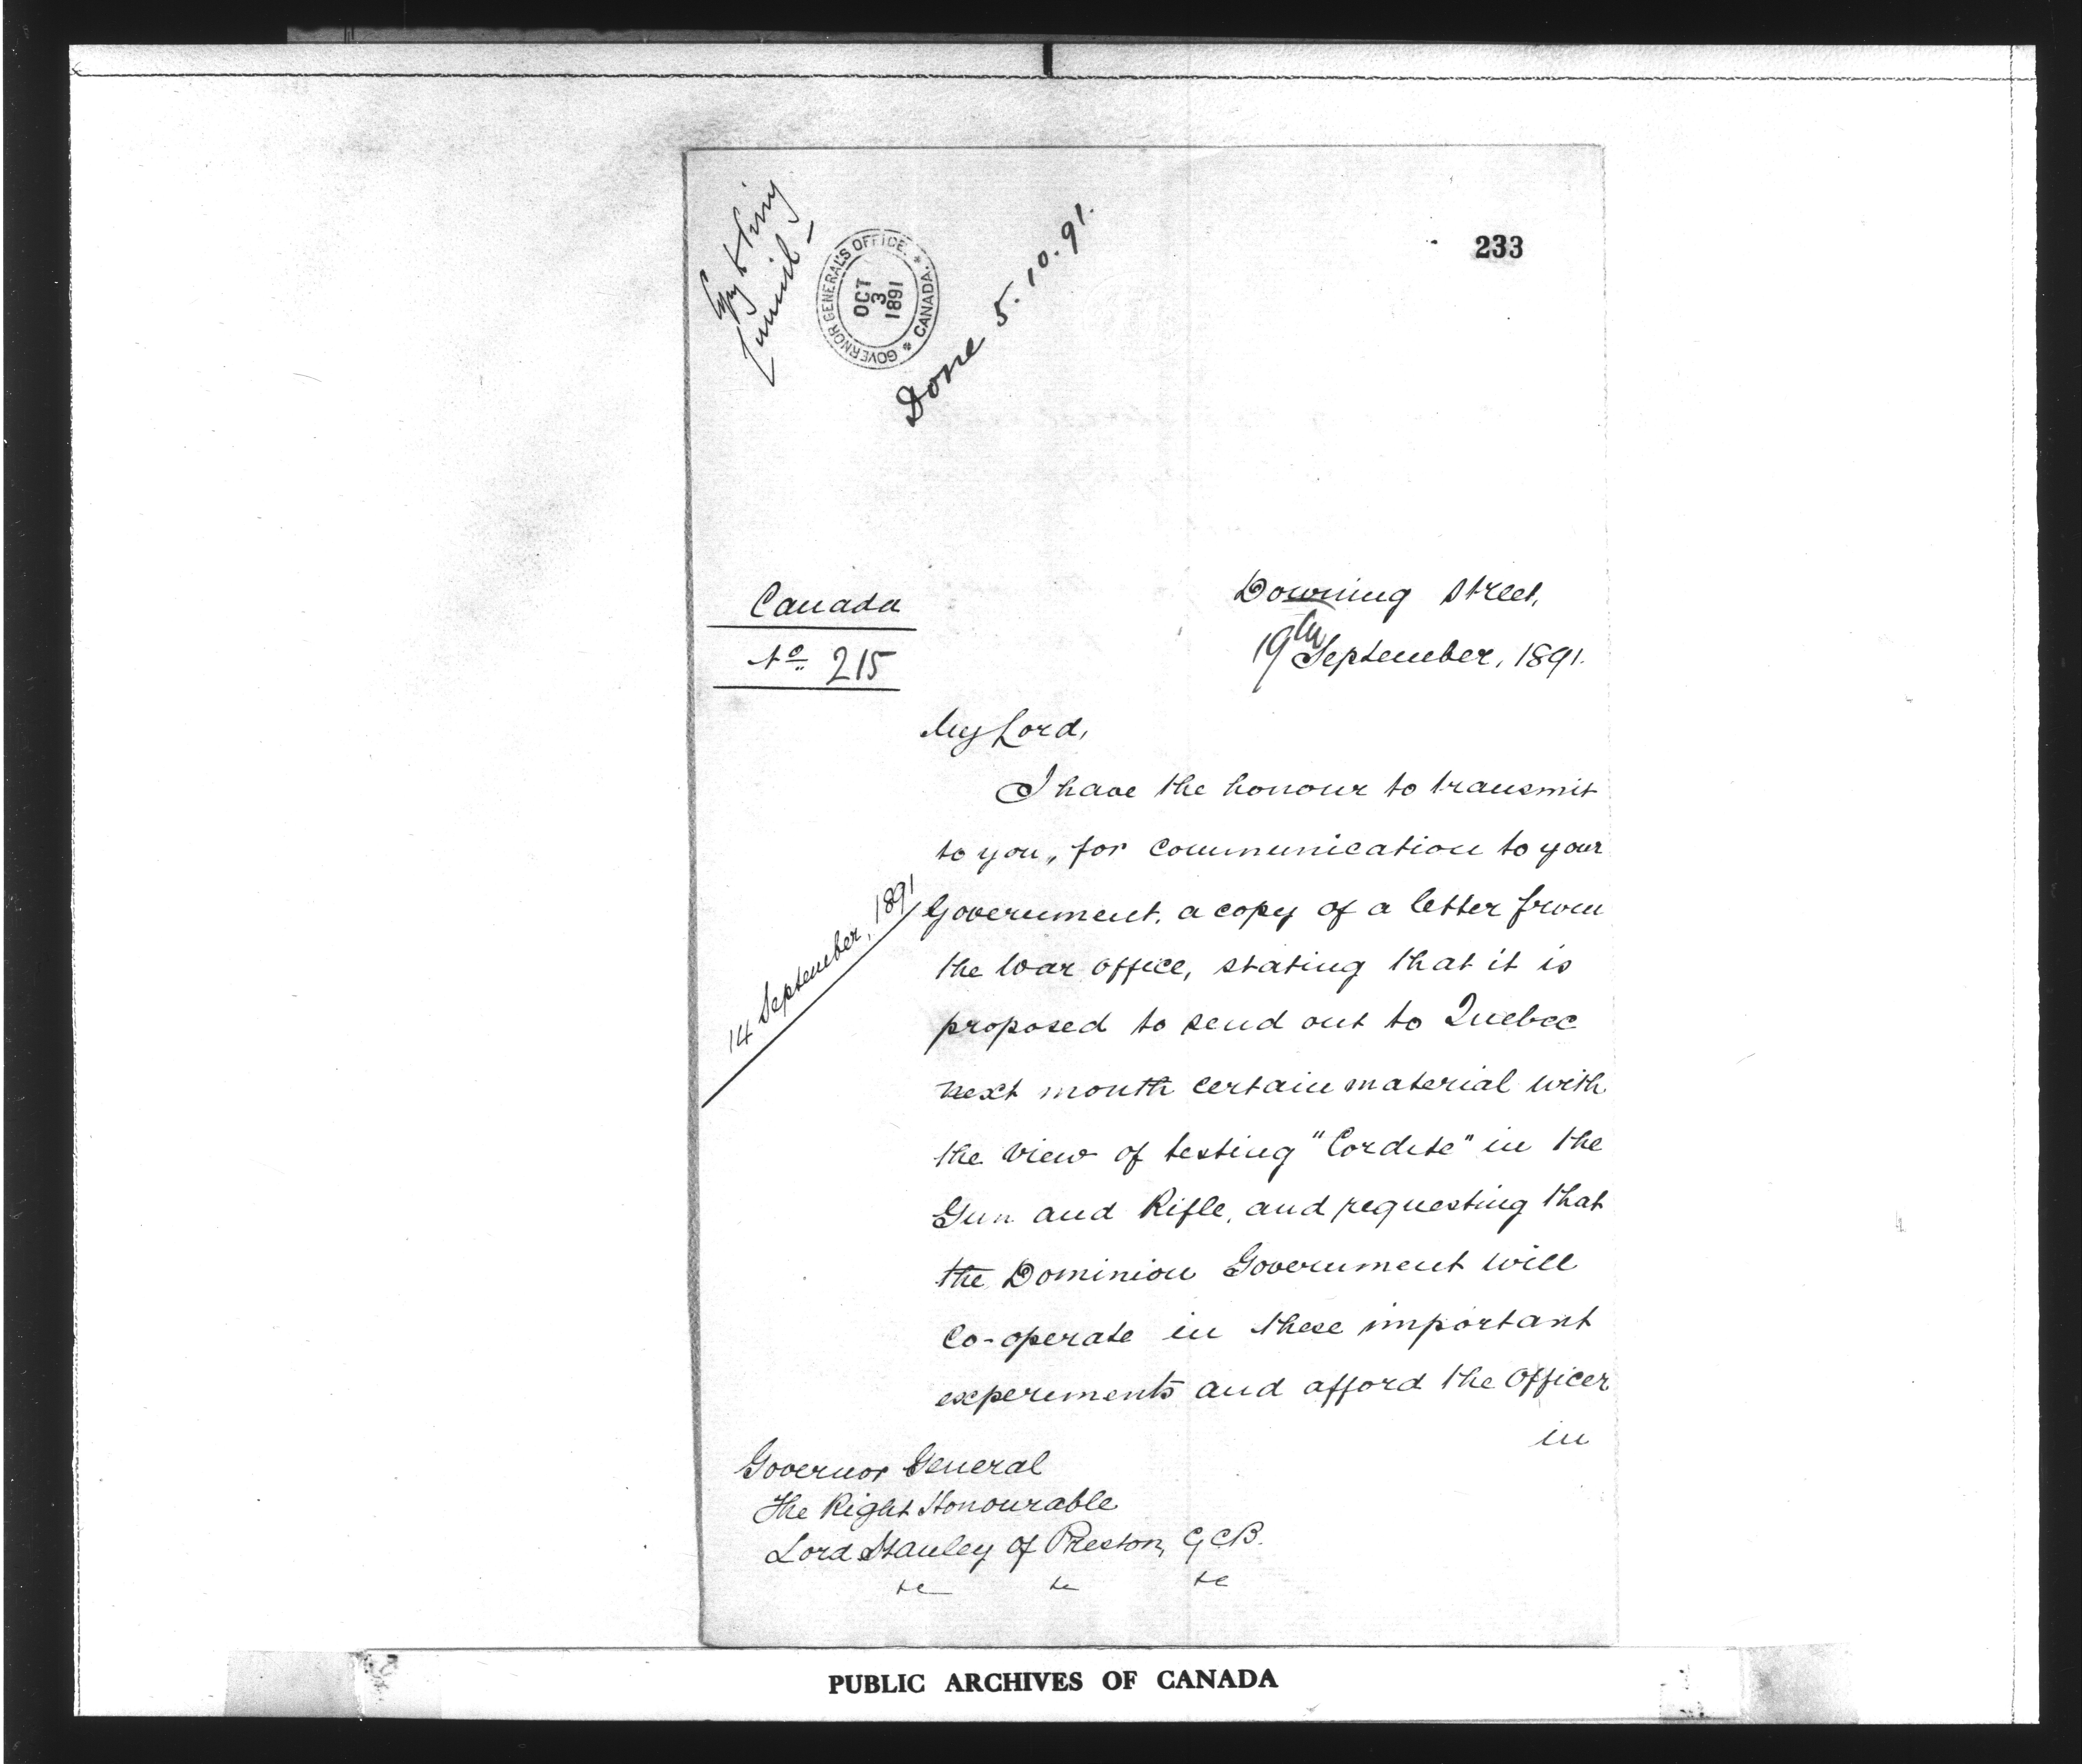 Copy to Privy
Council -
GOVERNOR GENERAL'S OFFICE. * CANADA. *
OCT
3
1891
Done 5.10.91.
233
Canada
No 215
Downing Street,
19th September, 1891.
My Lord,
I have the honour to transmit
to you, for communication to your
14 September, 1891
Government, a copy of a letter from
the War Office, stating that it is
proposed to send out to Quebec
next month certain material with
the view of testing "Cordite" in the
Gun and Rifle, and requesting that
the Dominion Government will
co-operate in these important
experiments and afford the Officer
in
Governor General
The Right Honourable
Lord Stanley of Preston, GCB.
&c &c &c
PUBLIC ARCHIVES OF CANADA